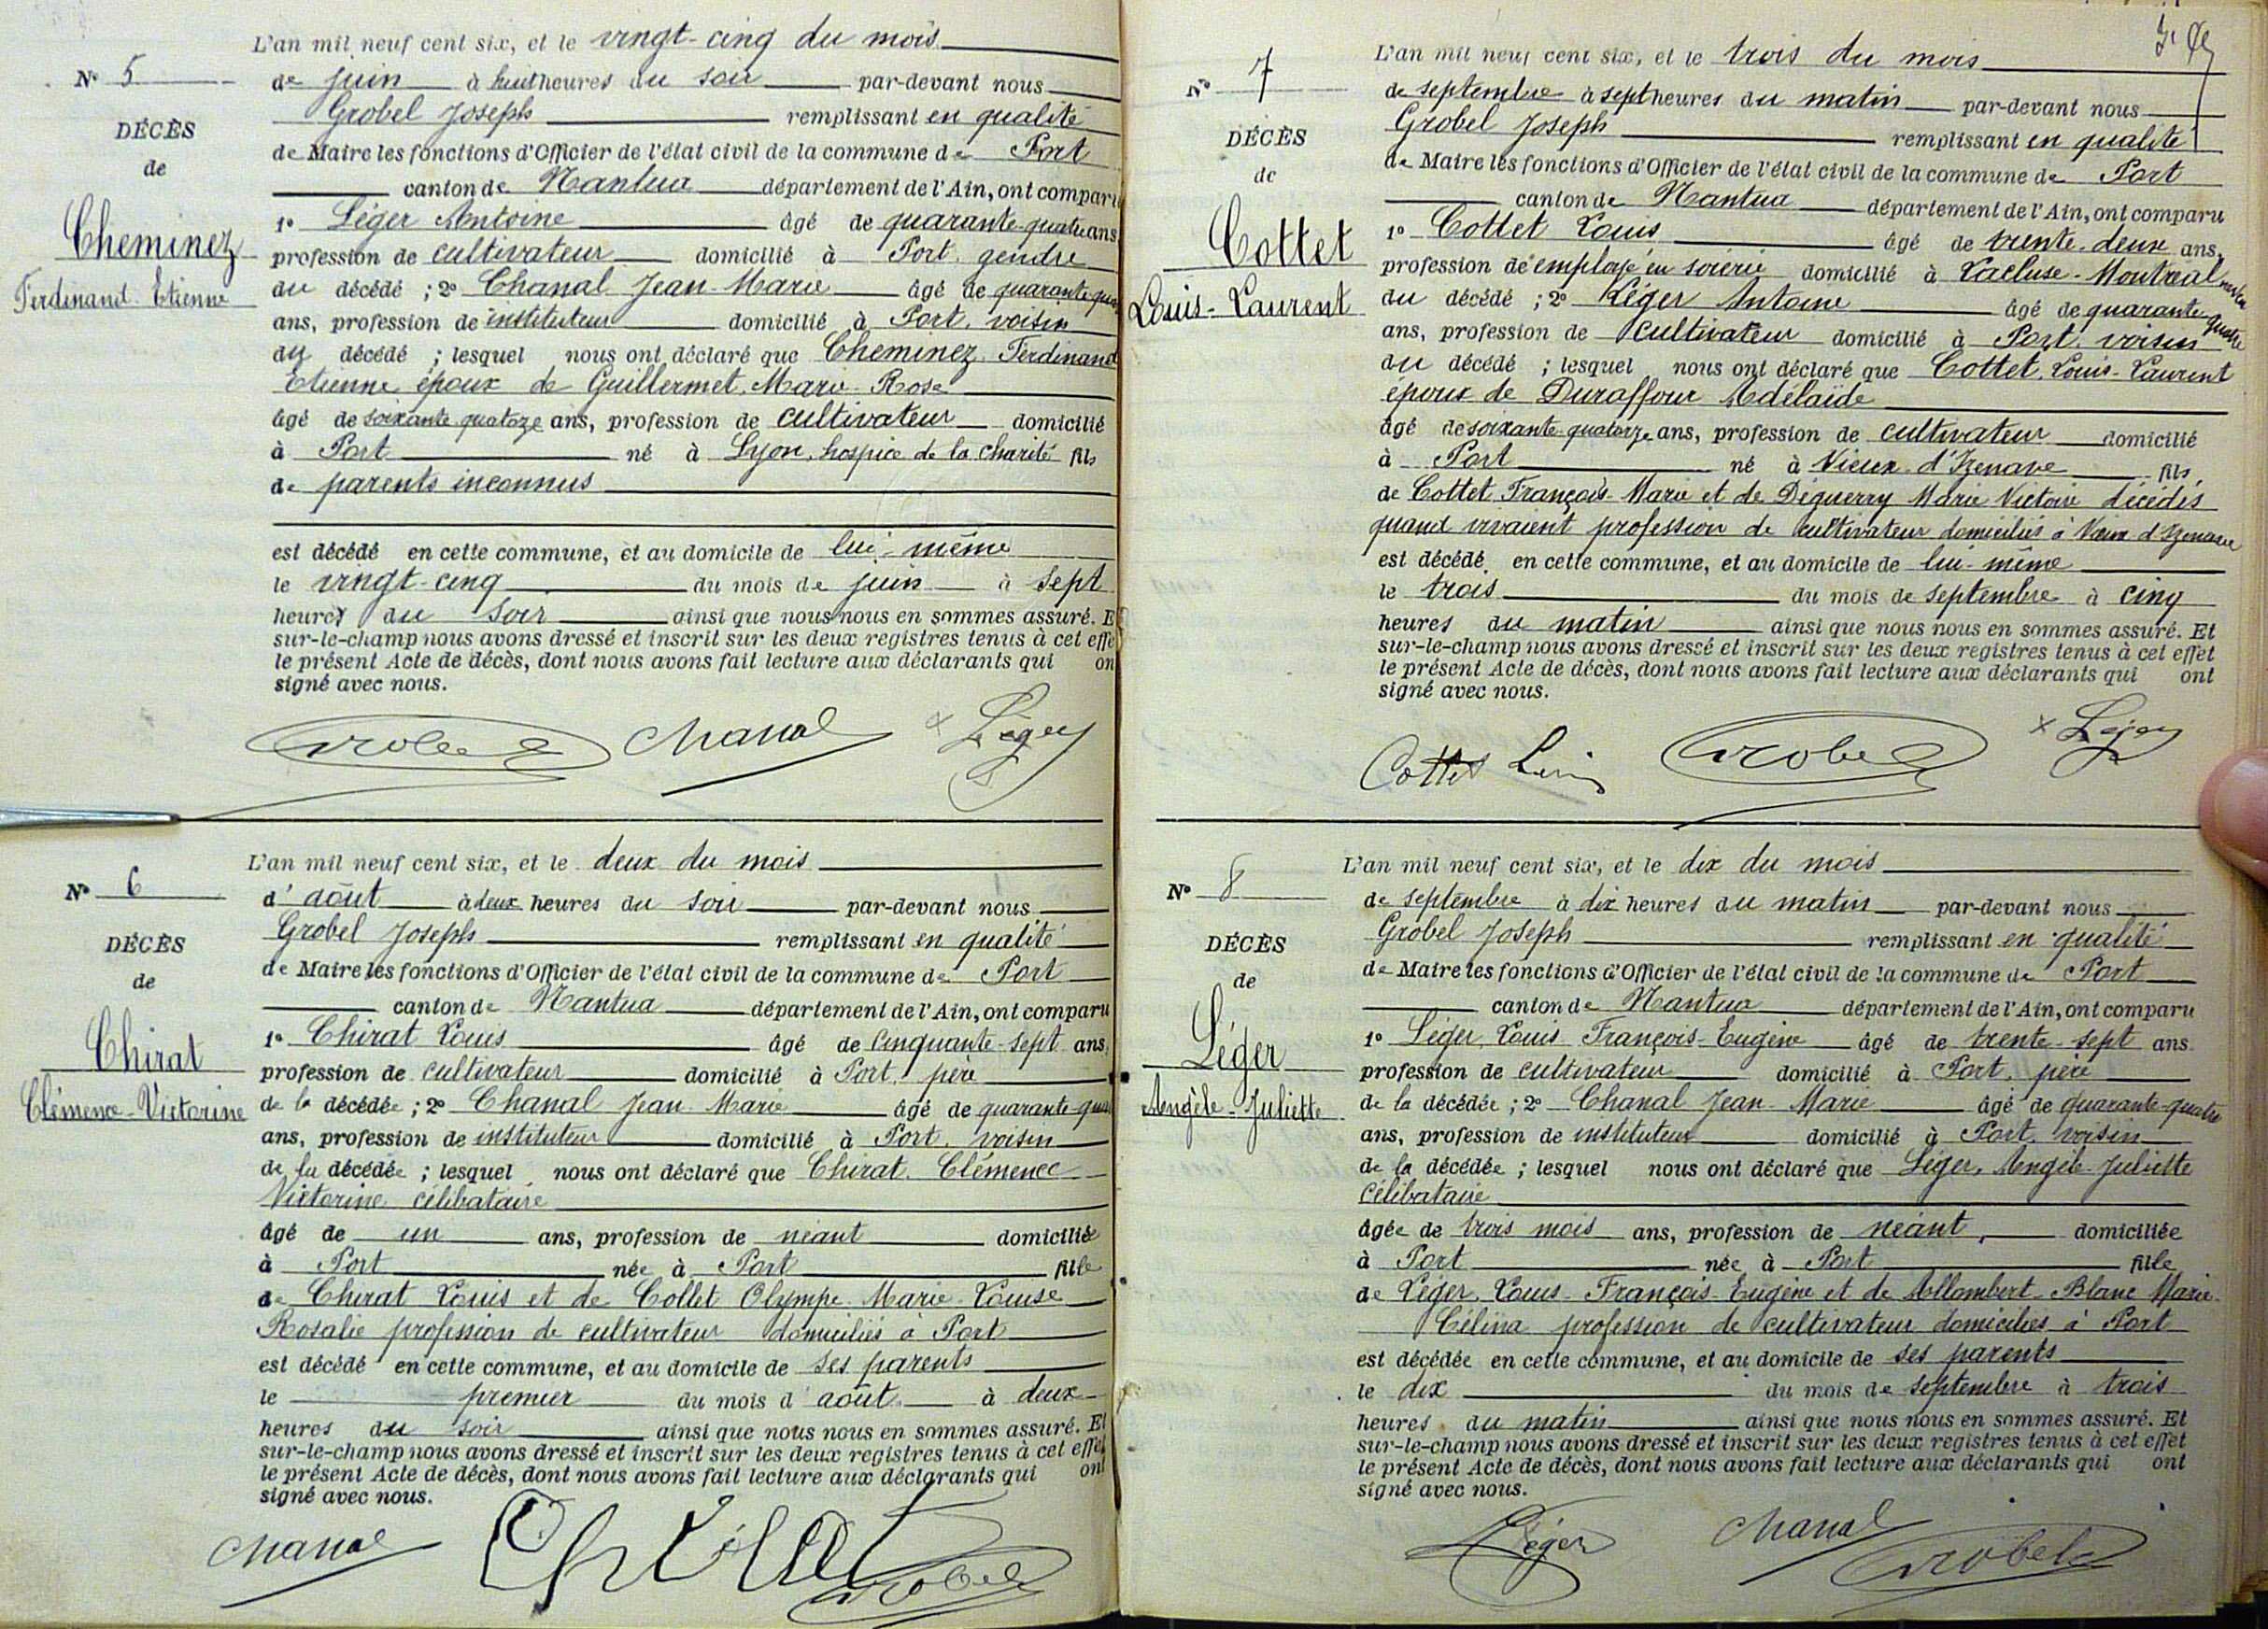 L'an mil neuf cent six, et le vingt-cinq du mois
N° 5
de juin à huit heures du soir par-devant nous
Grobel Joseph remplissant en qualité
DÉCÈS
de Maire les fonctions d'Officier de l'état civil de la commune de Port
de
canton de Nantua département de l'Ain, ont comparu
1° Léger Antoine âgé de quarante-quatre ans
Cheminez
profession de cultivateur domicilié à Port, gendre
Ferdinand Etienne
du décédé ; 2° Chanal Jean-Marie âgé de quarante-qua
ans, profession de instituteur domicilié à Port, voisin
du décédé ; lesquel nous ont déclaré que Cheminez Ferdinand
Etienne époux de Guillermet, Marie-Rose
âgé de soixante quatoze ans, profession de cultivateur domicilié
à Port né à Lyon, hospice de la charité fils
de parents inconnus
est décédé en cette commune, et au domicile de lui-même
le vingt-cinq du mois de juin à sept
heures du soir ainsi que nous nous en sommes assuré. E
sur-le-champ nous avons dressé et inscrit sur les deux registres tenus à cet effe
le présent Acte de décès, dont nous avons fait lecture aux déclarants qui on
signé avec nous.
Grobel Chanal x Léger
L'an mil neuf cent six, et le deux du mois
N° 6
d'août à deux heures du soir par-devant nous
Grobel Joseph remplissant en qualité
DÉCÈS
de Maire les fonctions d'Officier de l'état civil de la commune de Port
de
canton de Nantua département de l'Ain, ont comparu
1° Chirat Louis âgé de cinquante-sept ans,
Chirat
profession de cultivateur domicilié à Port, père
Clémence-Victorine
de la décédée ; 2° Chanal Jean-Marie âgé de quarante-qua
ans, profession de instituteur domicilié à Port, voisin
de la décédée ; lesquel nous ont déclaré que Chirat, Clémence
Victorine célibataire
âgé de un ans, profession de néant domiciliée
à Port née à Port fille
de Chirat Louis et de Collet Olympe Marie-Louise
Rosalie profession de cultivateur domiciliés à Port
est décédé en cette commune, et au domicile de ses parents
le premier du mois d'août à deux
heures du soir ainsi que nous nous en sommes assuré. Et
sur-le-champ nous avons dressé et inscrit sur les deux registres tenus à cet effet
le présent Acte de décès, dont nous avons fait lecture aux déclarants qui ont
signé avec nous.
Chanal Chirat Grobel
L'an mil neuf cent six, et le trois du mois
N° 7
de septembre à sept heures du matin par-devant nous
Grobel Joseph remplissant en qualité
DÉCÈS
de Maire les fonctions d'Officier de l'état civil de la commune de Port
de
canton de Nantua département de l'Ain, ont comparu
1° Cottet Louis âgé de trente-deux ans,
Cottet
profession de employé en soierie domicilié à Lacluse-Montréal
Louis-Laurent
du décédé ; 2° Léger Antoine âgé de quarante-quatre
ans, profession de cultivateur domicilié à Port, voisin
du décédé ; lesquel nous ont déclaré que Cottet, Louis-Laurent
époux de Duraffour Adélaïde
âgé de soixante quatorze ans, profession de cultivateur domicilié
à Port né à Vieux-d'Izenave fils
de Cottet, François-Marie et de Déguerry Marie Victoire décédés
quand vivaient profession de cultivateur domiciliés à Vieux d'Izenave
est décédé en cette commune, et au domicile de lui-même
le trois du mois de septembre à cinq
heures du matin ainsi que nous nous en sommes assuré. Et
sur-le-champ nous avons dressé et inscrit sur les deux registres tenus à cet effet
le présent Acte de décès, dont nous avons fait lecture aux déclarants qui ont
signé avec nous.
Cottet Louis Grobel x Léger
L'an mil neuf cent six, et le dix du mois
N° 8
de septembre à dix heures du matin par-devant nous
Grobel Joseph remplissant en qualité
DÉCÈS
de Maire les fonctions d'Officier de l'état civil de la commune de Port
de
canton de Nantua département de l'Ain, ont comparu
1° Léger, Louis François-Eugène âgé de trente-sept ans
Léger
profession de cultivateur domicilié à Port, père
Angèle-Juliette
de la décédée ; 2° Chanal Jean-Marie âgé de quarante-quatre
ans, profession de instituteur domicilié à Port, voisin
de la décédée ; lesquel nous ont déclaré que Léger, Angèle-Juliette
célibataire
âgée de trois mois ans, profession de néant, domiciliée
à Port née à Port fille
de Léger, Louis-François-Eugène et de Allombert-Blanc Marie-
Célina profession de cultivateur domiciliés à Port
est décédée en cette commune, et au domicile de ses parents
le dix du mois de septembre à trois
heures du matin ainsi que nous nous en sommes assuré. Et
sur-le-champ nous avons dressé et inscrit sur les deux registres tenus à cet effet
le présent Acte de décès, dont nous avons fait lecture aux déclarants qui ont
signé avec nous.
Léger Chanal Grobel